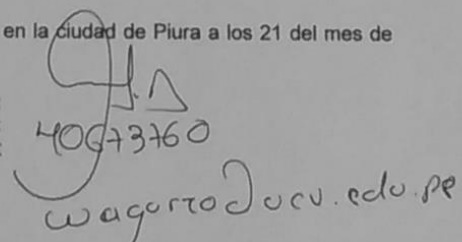 en la ciudad de Piura a los 21 del mes de
40673760
wagurto@ucv.edu.pe